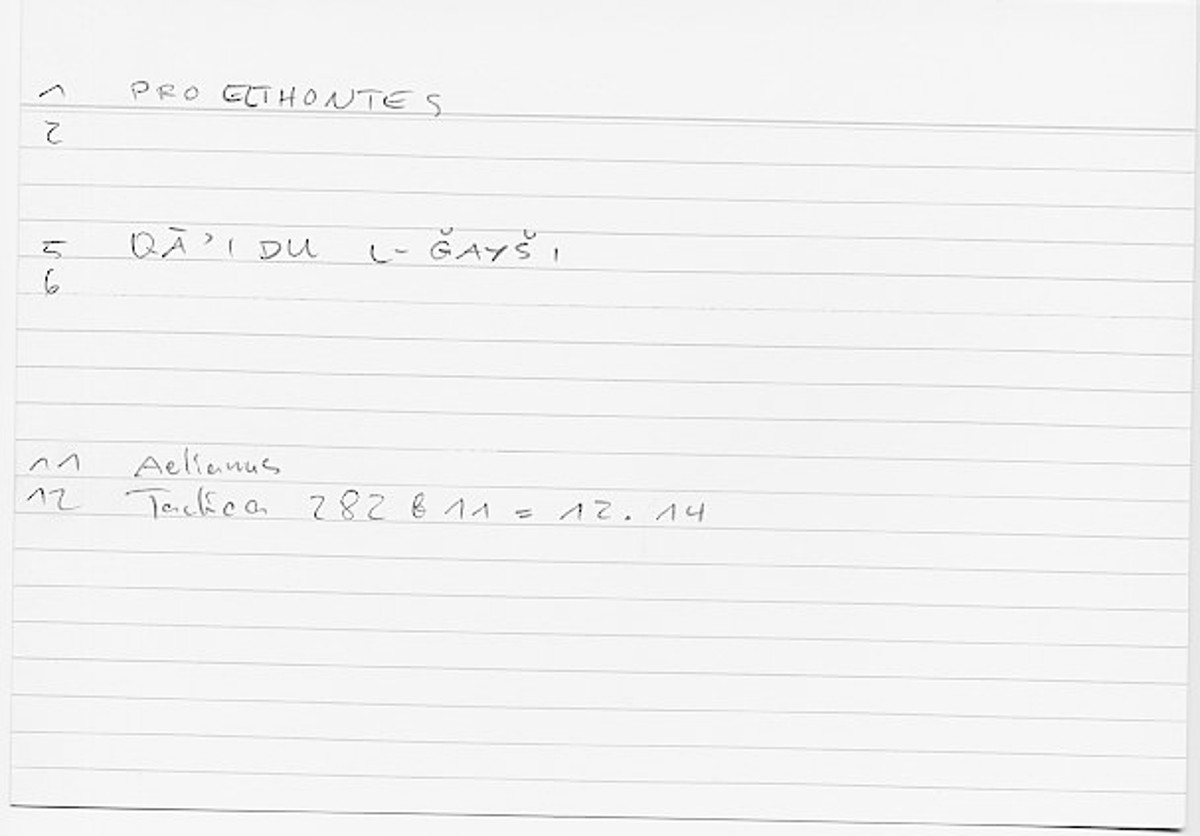 1 PRO ELTHONTES
2
5 QĀ’IDU L-ǦAYŠI
6
11 Aelianus
12 Tactica 282 b 11 = 12. 14